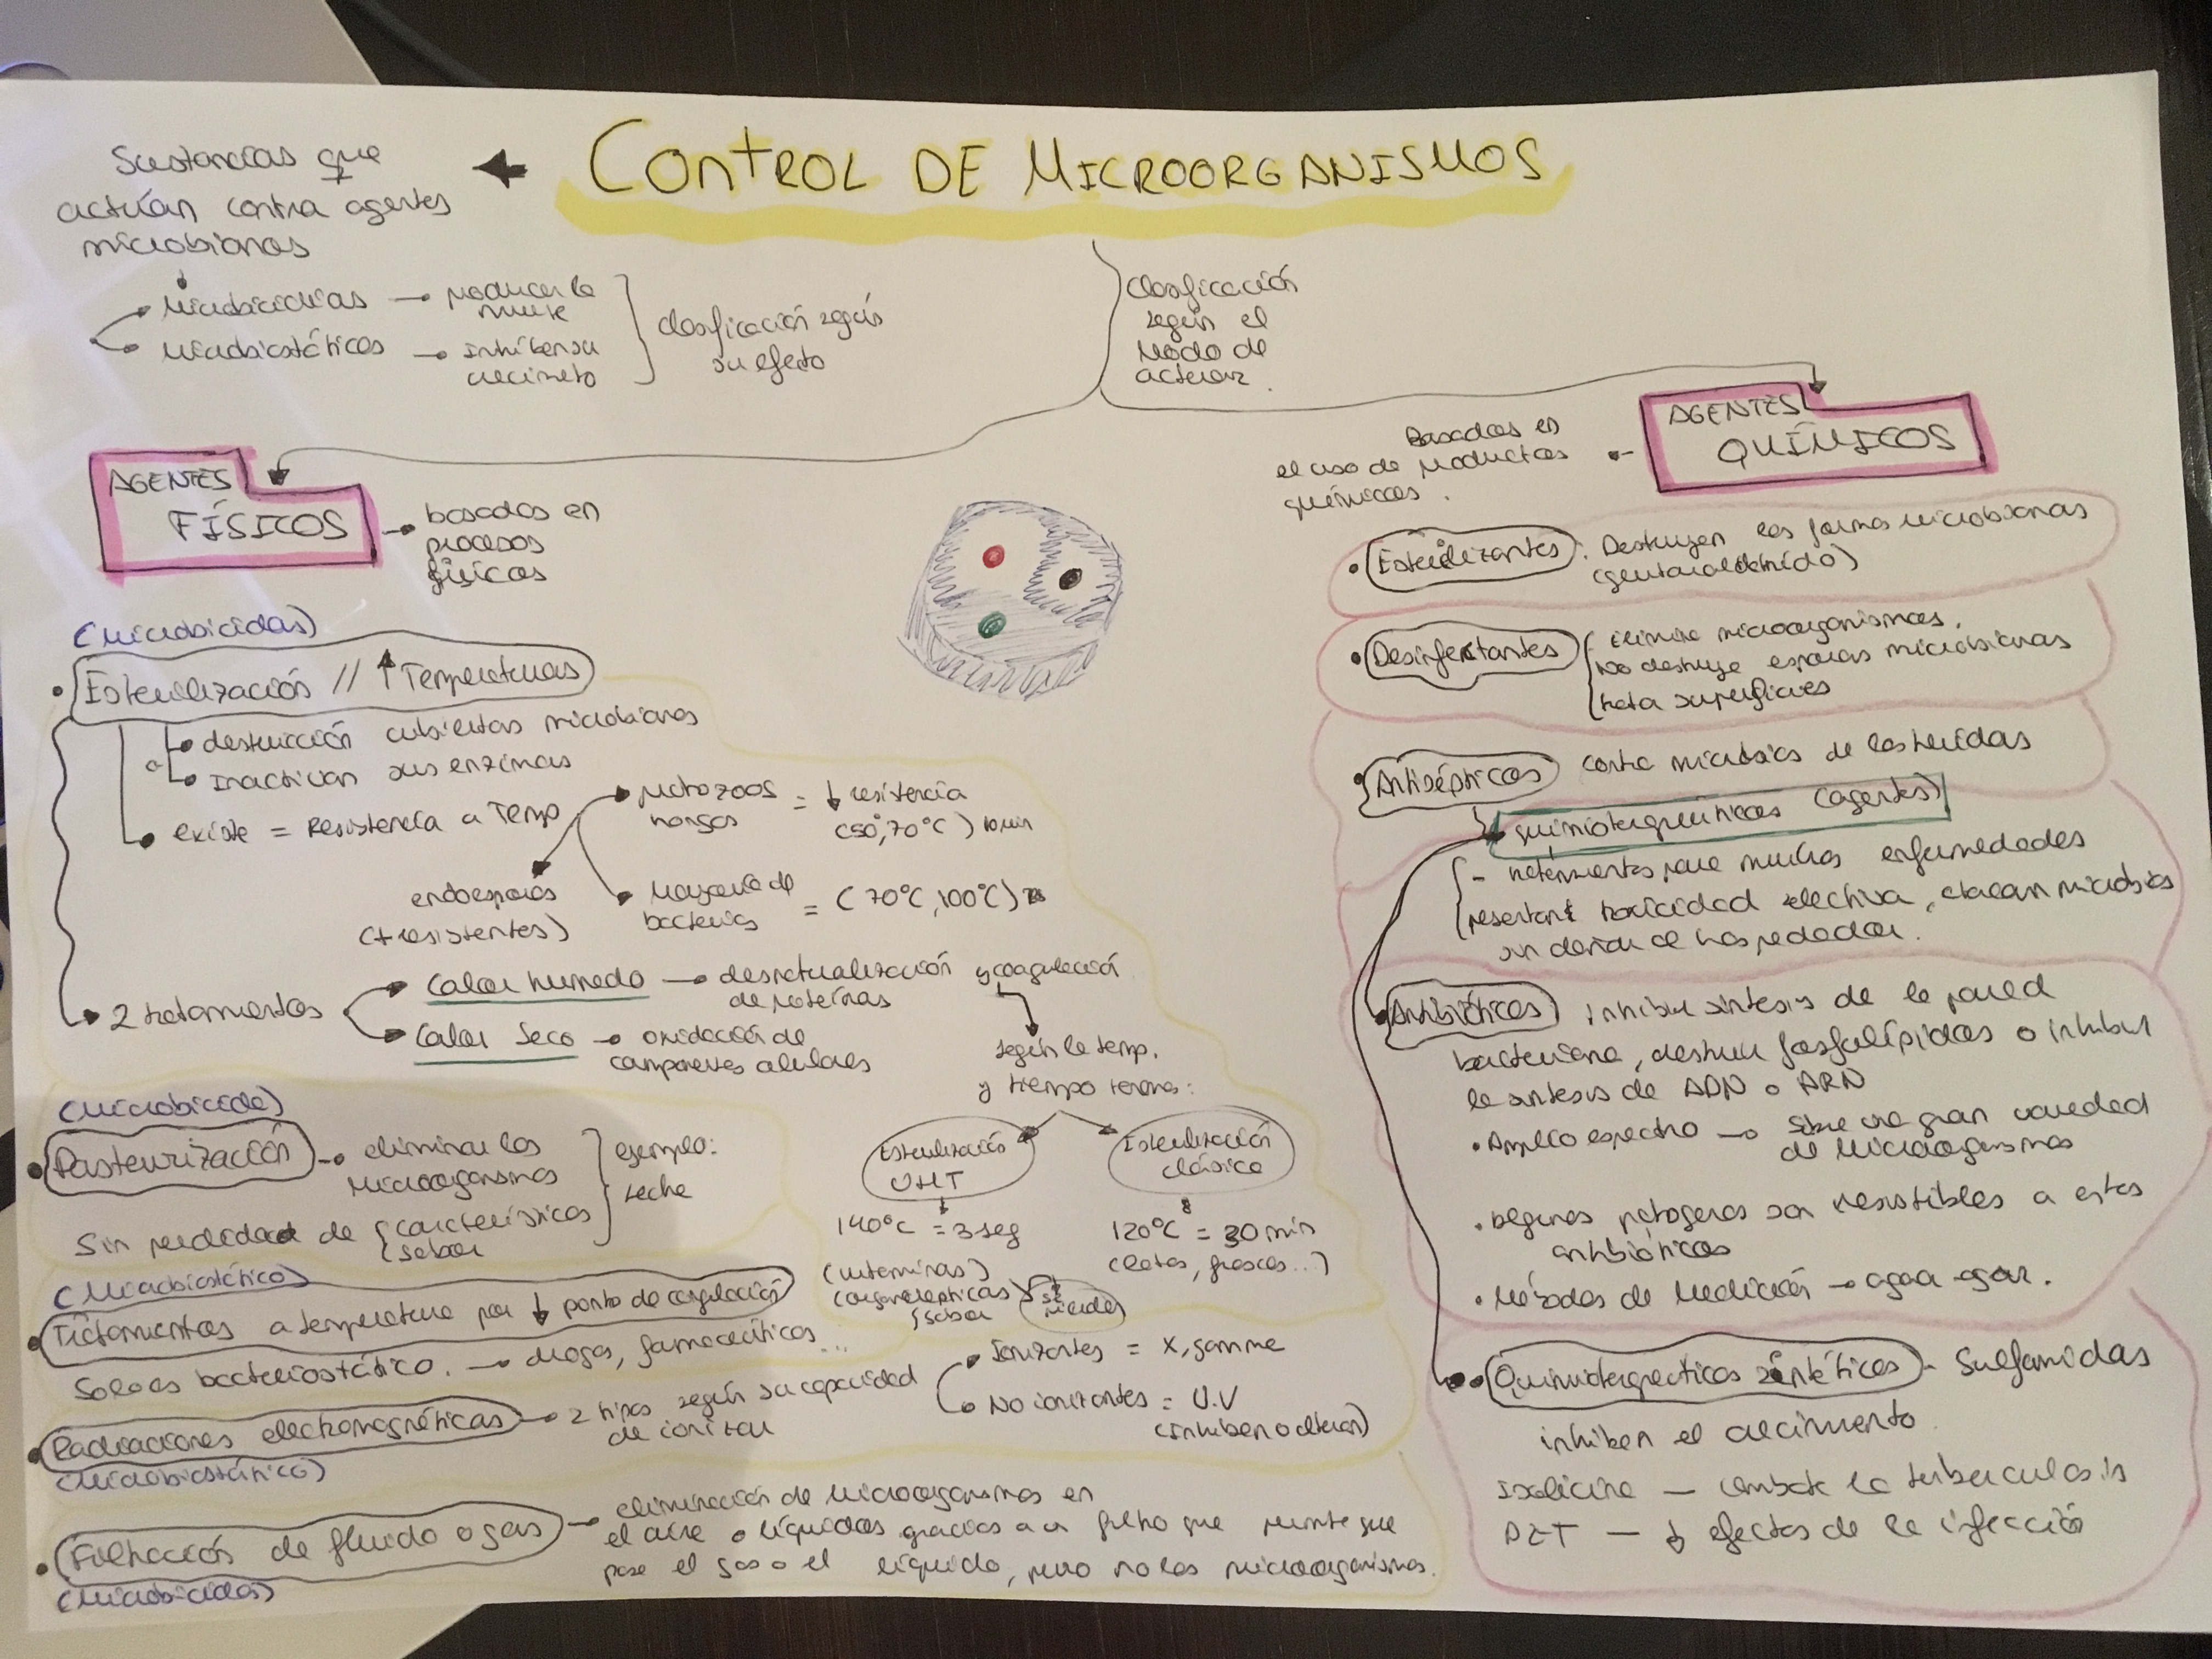 CONTROL DE MICROORGANISMOS
Sustancias que
actúan contra agentes
microbianos
Microbicidas → producen la
muerte
Microbiostáticos → Inhiben su
crecimeto
clasificación según
su efecto
Clasificación
según el
Modo de
actuar.
AGENTES
FÍSICOS
basados en
procesos
físicos
(Microbicidas)
• Esterilización // ↑ Temperaturas
destrucción cubiertas microbianas
Inactivan sus enzimas
existe = Resistencia a Temp
protozoos
hongos
= ↓ resistencia
(50°,70°C) 10 min
endoesporas
(+ resistentes)
Mayoría de
bacterias
= (70°C, 100°C)
2 tratamientos
Calor humedo → desnaturalización y coagulación
de proteínas
Calor Seco → oxidación de
componentes celulares
según la temp.
y tiempo tenemos:
Esterilización
UHT
140°C = 3 seg
(vitaminas)
(organolépticas
sabor
se
pierde
Esterilización
clásica
120°C = 30 min
(latas, frascos...)
(Microbicida)
• Pasteurización → eliminar los
Microorganismos
Sin perdida de características
sabor
ejemplo:
Leche
(Microbiostático)
• Tratamientos a temperatura por ↓ ponto de congelación
Solo es bacteriostático. → drogas, farmaceúticos...
• Radiaciones electromagnéticas → 2 tipos según su capacidad
de ionizar
(Microbiostático)
Ionizantes = X, gamma
No ionizantes = U.V
(Inhiben o alteran)
• Filtración de fluido o gas → eliminación de Microorganismos en
el aire o líquidos gracias a un filtro que permite que
pase el gas o el líquido, pero no los microorganismos.
(Microbicidas)
AGENTES
QUÍMICOS
Basados en
el uso de productos
químicos.
• Esterilizantes: Destruyen las formas microbianas
(glutaraldehido)
• Desinfectantes
elimina microorganismos,
no destruye esporas microbianas
trata superficies
• Antisépticos contra microbios de las heridas
quimioterapéuticos (agentes)
- tratamientos para muchas enfermedades
presentan toxicidad selectiva, atacan microbios
sin dañar al hospedador.
• Antibióticos inhibir síntesis de la pared
bacteriana, destruir fosfolípidos o inhibir
la síntesis de ADN o ARN
• Amplio espectro → sobre una gran variedad
de Microorganismos
• Algunos patogenos son resistibles a estos
antibióticos
• Métodos de Medición → agar-agar.
• Quimioterapeuticos sintéticos - Sulfamidas
inhiben el crecimiento.
combate la tuberculosis
↓ efectos de la infección